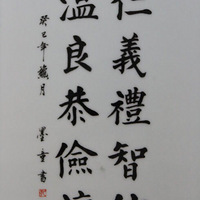 仁義禮智
溫良恭儉讓
癸巳年月
墨童書